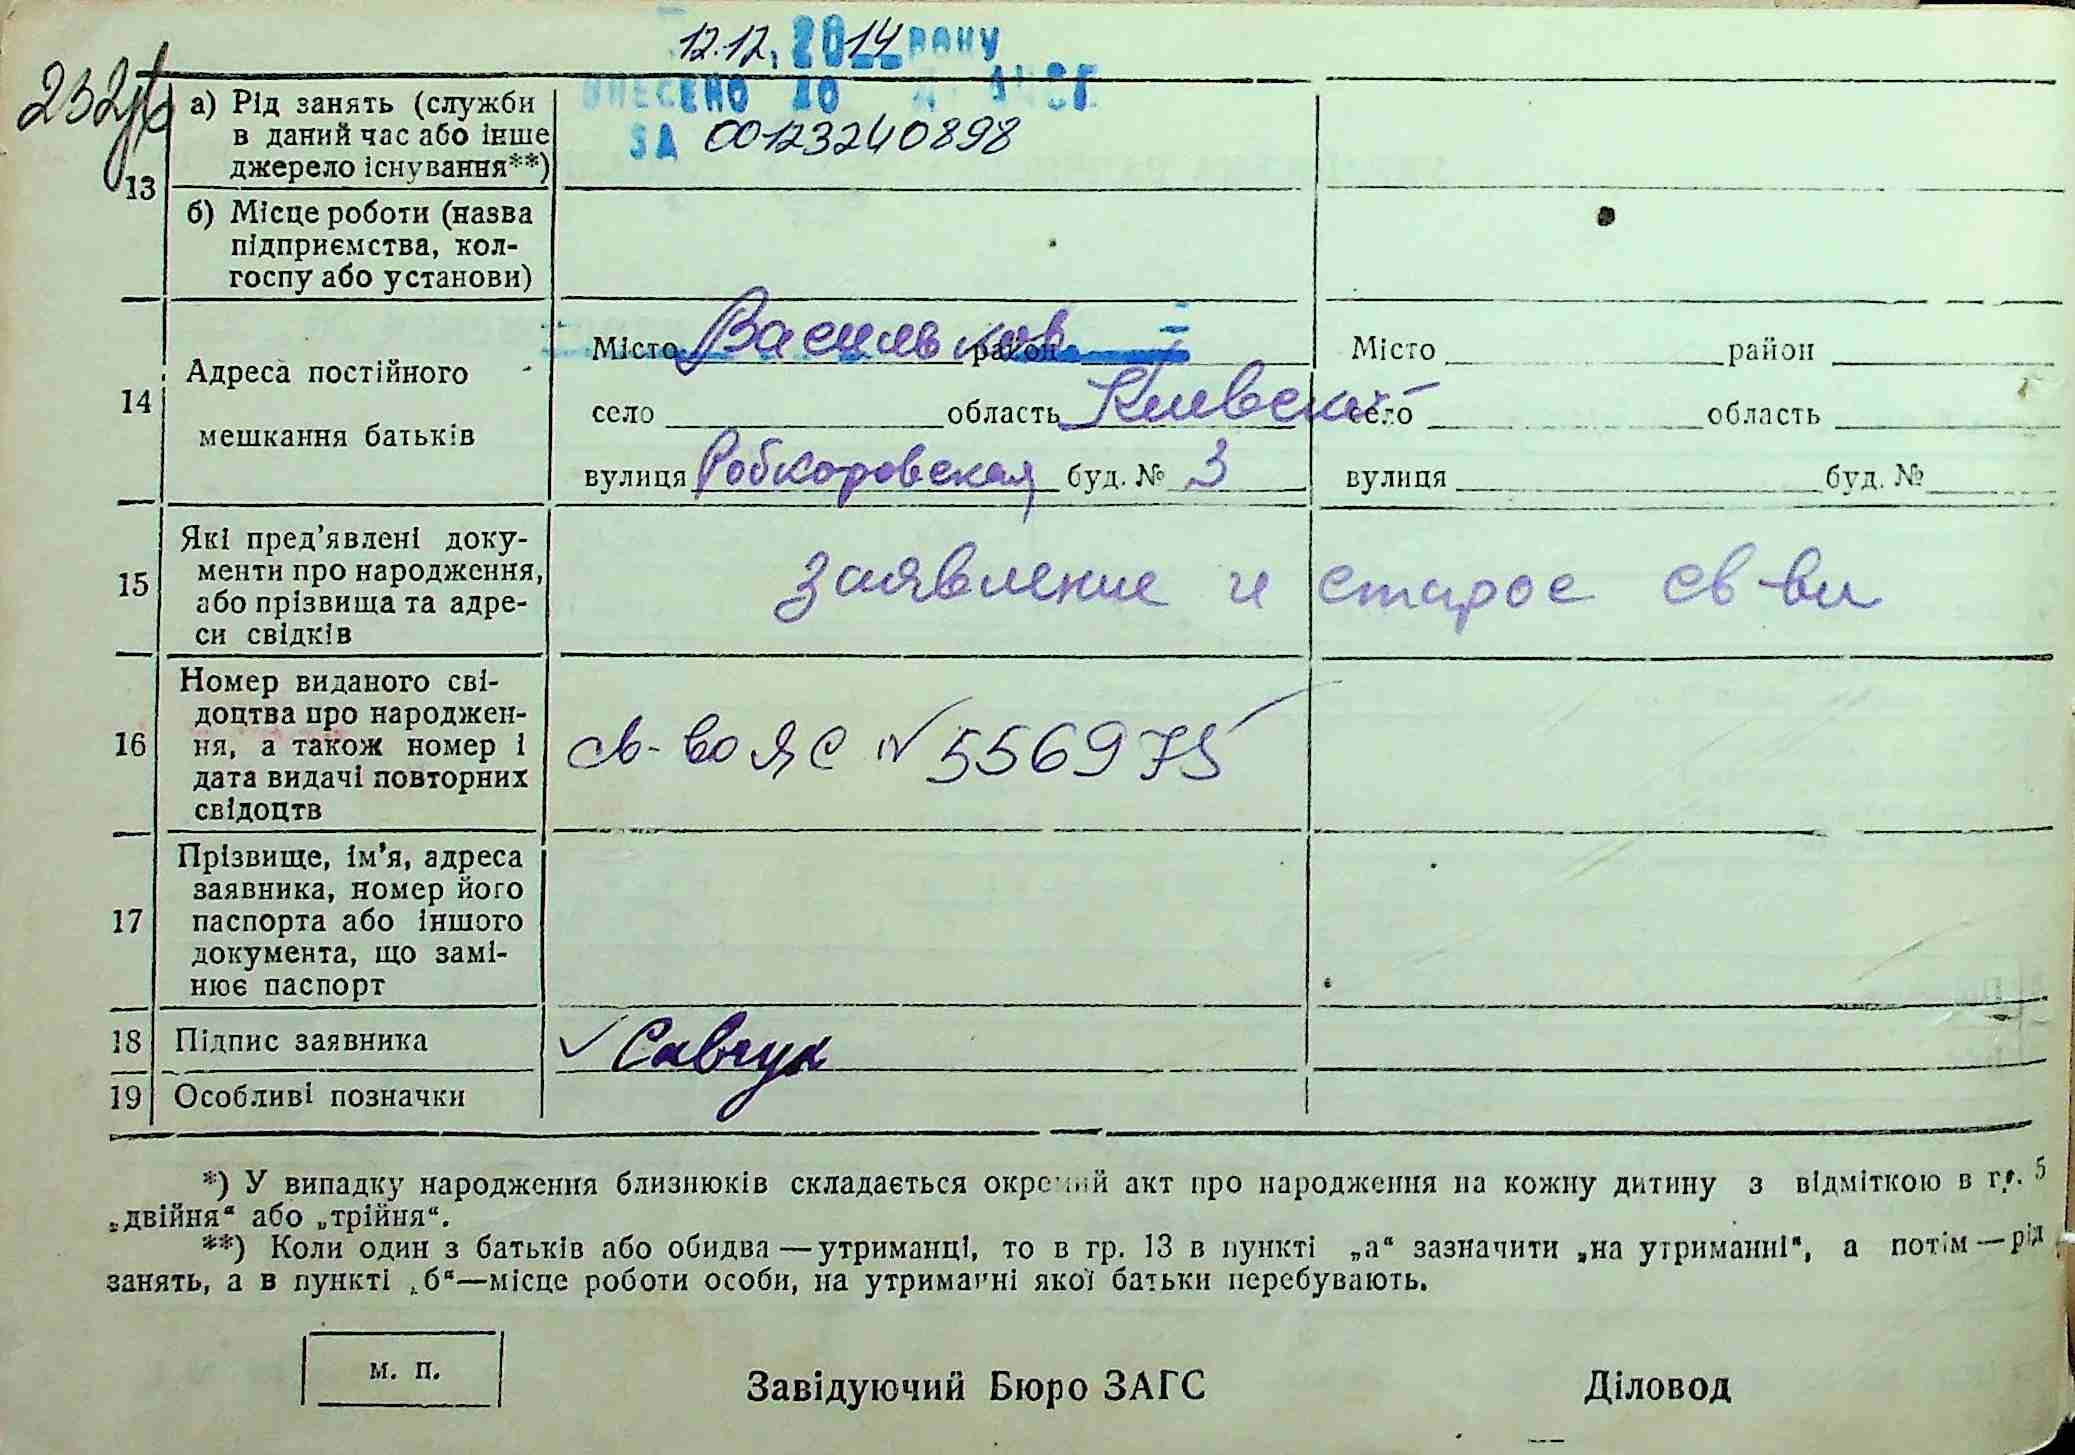 12.12. 2014 року
232
ВНЕСЕНО ДО ДРАЦСГ
ЗА 00123240898
13
а) Рід занять (служби
в даний час або інше
джерело існування**)
б) Місце роботи (назва
підприємства, кол-
госпу або установи)
14
Адреса постійного
мешкання батьків
Місто Васильков район
село область Киевская
вулиця Робкоровская буд. № 3
Місто район
село область
вулиця буд. №
15
Які пред’явлені доку-
менти про народження,
або прізвища та адре-
си свідків
заявление и старое св-ви
16
Номер виданого сві-
доцтва про народжен-
ня, а також номер і
дата видачі повторних
свідоцтв
св-во ЯС № 556975
17
Прізвище, ім’я, адреса
заявника, номер його
паспорта або іншого
документа, що замі-
нює паспорт
18 Підпис заявника Савчук
19 Особливі позначки
*) У випадку народження близнюків складається окремий акт про народження на кожну дитину з відміткою в гр. 5
„двійня“ або „трійня“.
**) Коли один з батьків або обидва—утриманці, то в гр. 13 в пункті „а“ зазначити „на утриманні“, а потім—рід
занять, а в пункті „б“—місце роботи особи, на утриманні якої батьки перебувають.
м. п.
Завідуючий Бюро ЗАГС Діловод